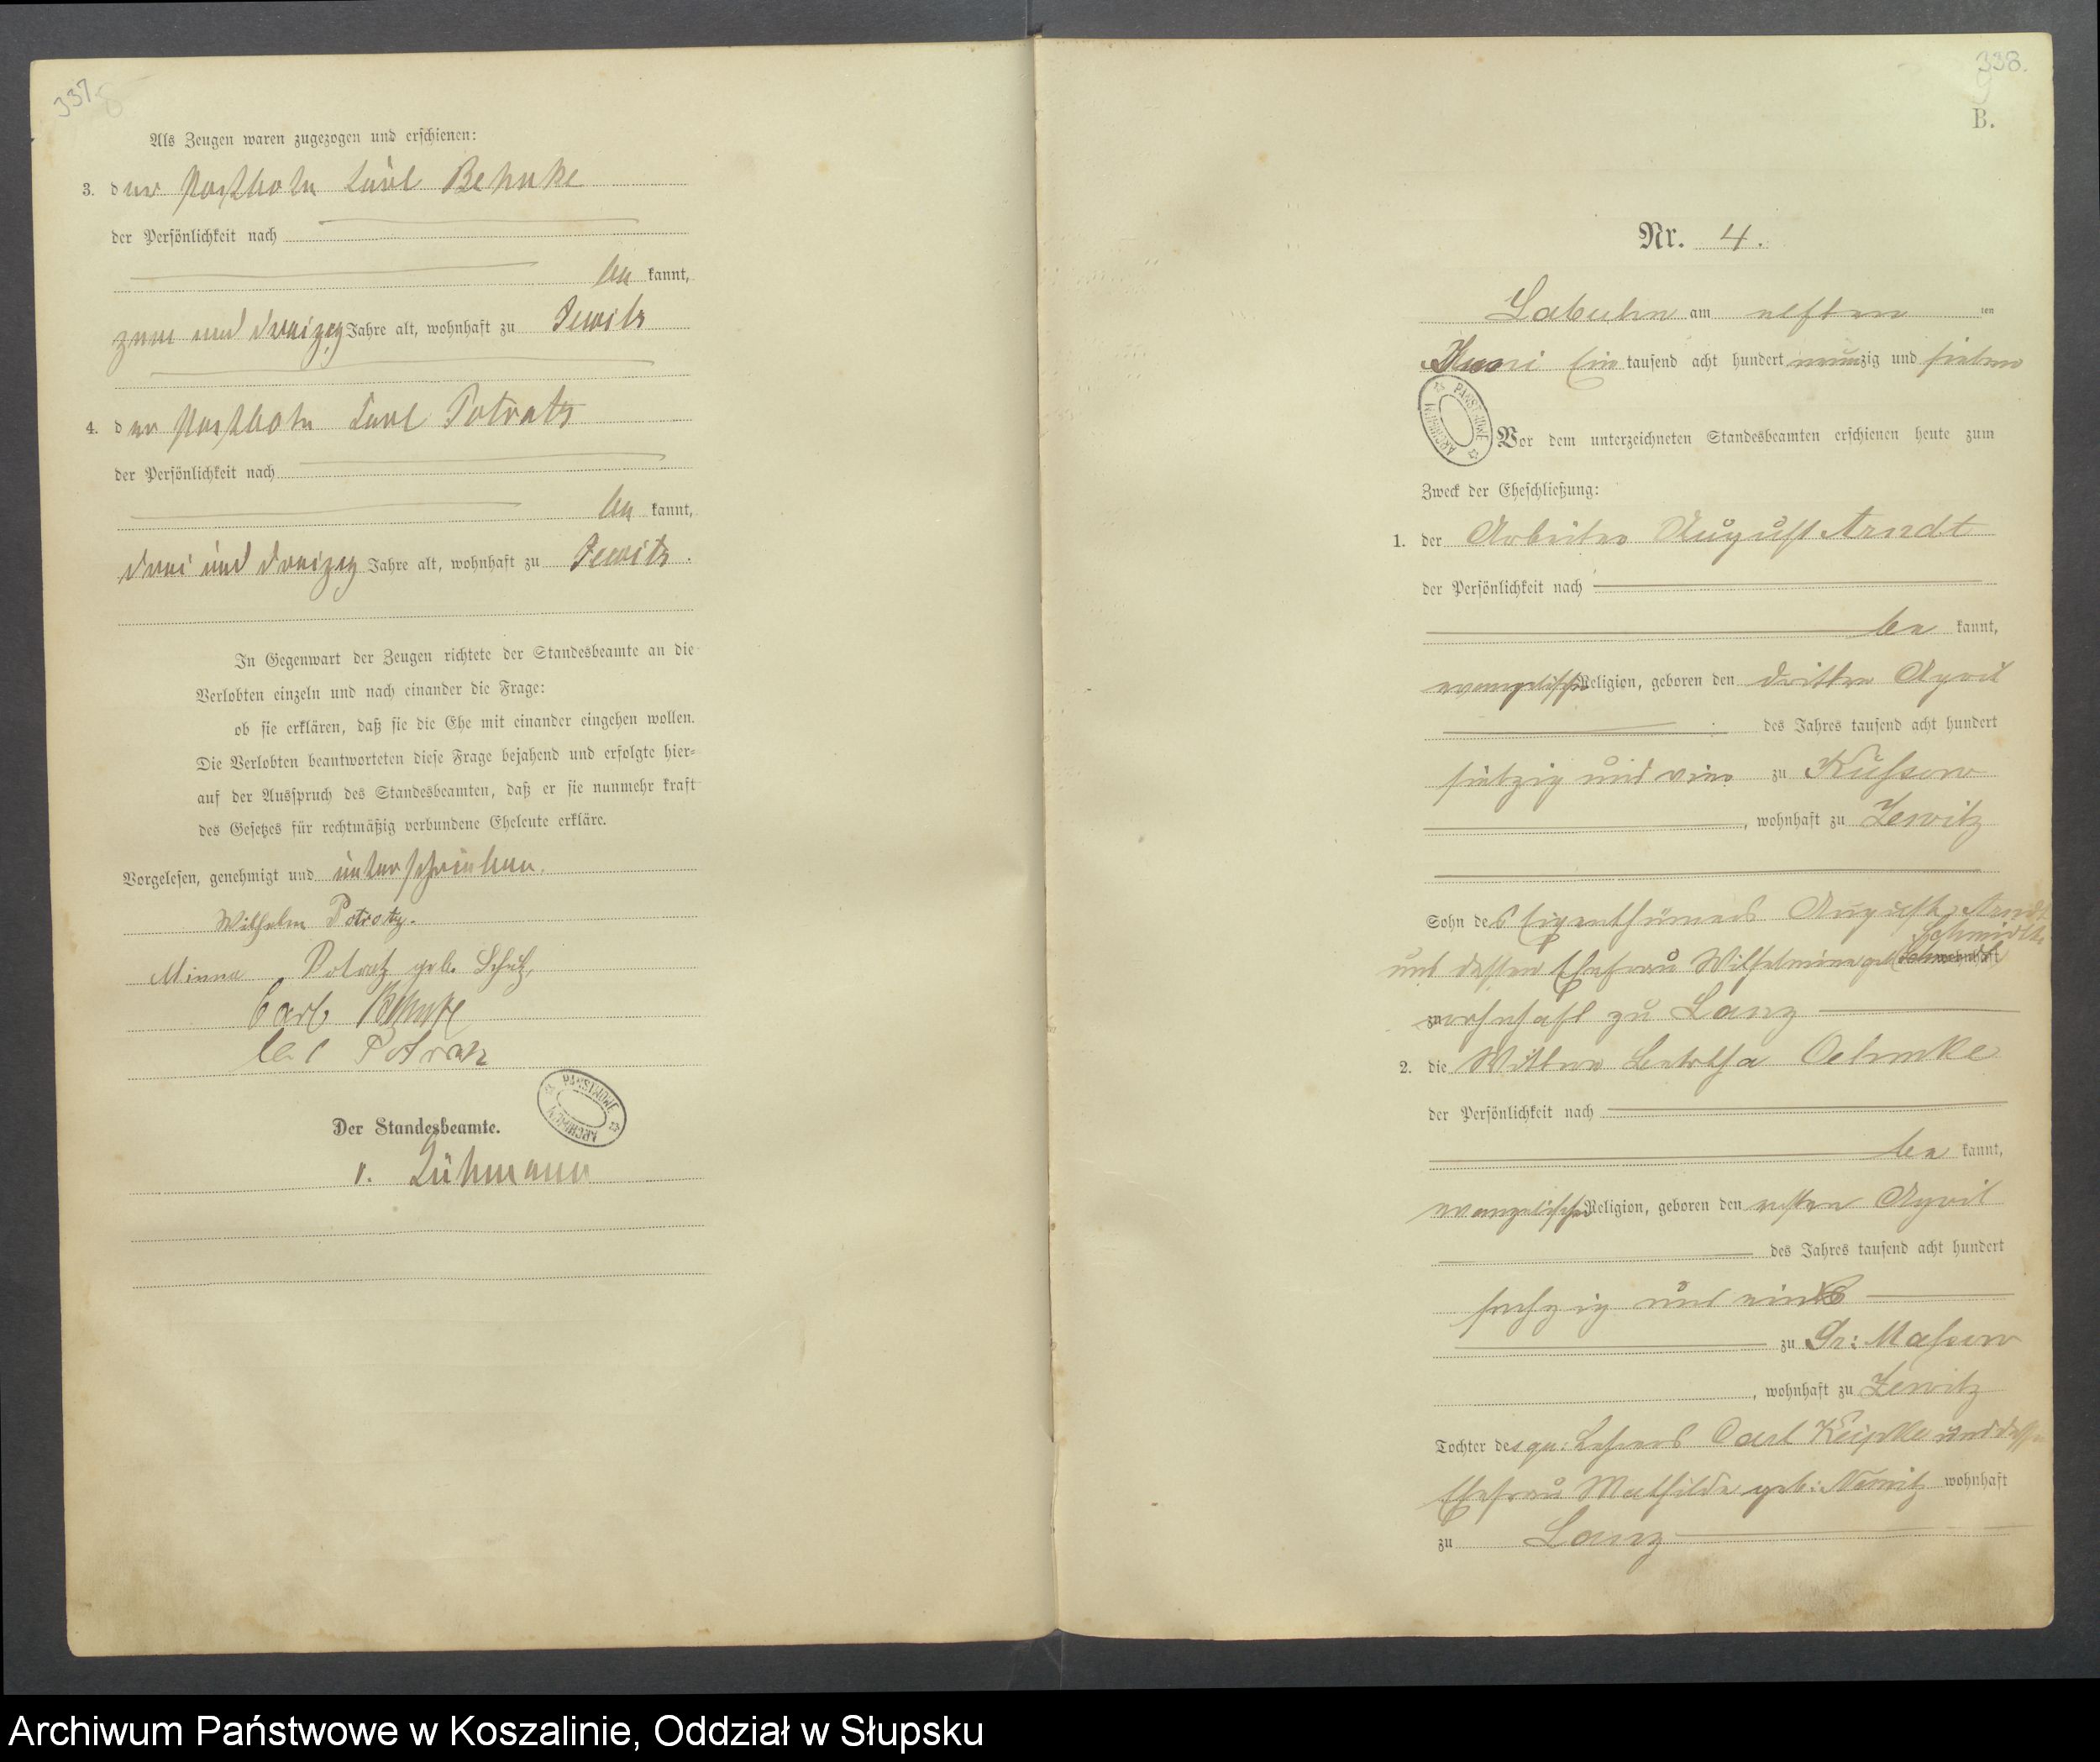 337.
Als Zeugen waren zugezogen und erschienen:
3. der Postbote Carl Behnke
der Persönlichkeit nach
be kannt,
zwei und dreizig Jahre alt, wohnhaft zu Zewitz
4. der Postbote Carl Potratz
der Persönlichkeit nach
be kannt,
drei und dreizig Jahre alt, wohnhaft zu Zewitz.
In Gegenwart der Zeugen richtete der Standesbeamte an die
Verlobten einzeln und nach einander die Frage:
ob sie erklären, daß sie die Ehe mit einander eingehen wollen.
Die Verlobten beantworteten diese Frage bejahend und erfolgte hier=
auf der Ausspruch des Standesbeamten, daß er sie nunmehr kraft
des Gesetzes für rechtmäßig verbundene Eheleute erkläre.
Vorgelesen, genehmigt und unterschrieben.
Wilhelm Potratz.
Minna Potratz geb. Schulz,
Carl Behnke
Carl Potratz
Der Standesbeamte.
PAŃSTWOWE ARCHIWUM
v. Lühmann
338.
B.
Nr. 4.
Labuhn am elften ten
Juni Ein tausend acht hundert neunzig und sieben
PAŃSTWOWE ARCHIWUM
Vor dem unterzeichneten Standesbeamten erschienen heute zum
Zweck der Eheschließung:
1. der Arbeiter August Arndt
der Persönlichkeit nach
be kannt,
evangelischer Religion, geboren den dritten April
des Jahres tausend acht hundert
siebzig und vier zu Küssow
, wohnhaft zu Zewitz
Sohn des Eigenthümers August Arndt
Schmidtke
und dessen Ehefrau Wilhelmine geb. wohnhaft
zu wohnhaft zu Lanz
2. die Wittwe Bertha Oelmke
der Persönlichkeit nach
be kannt,
evangelischer Religion, geboren den ersten April
des Jahres tausend acht hundert
sechzig und ein
zu Gr: Massow
, wohnhaft zu Zewitz
Tochter des Lehrers Carl und dessen
Ehefrau Mathilde geb: Nemitz wohnhaft
zu Lanz
Archiwum Państwowe w Koszalinie, Oddział w Słupsku